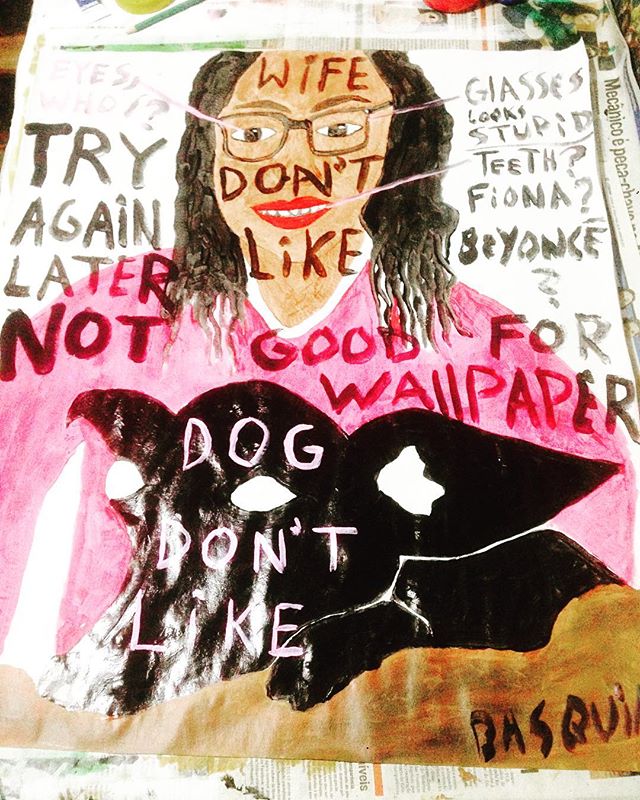 WiFE
DON'T
LiKE
EYES,
WHO!?
TRY
AGAiN
LATER
GlASSES
LOOKS
STUPiD
TEETH?
FiONA?
BEYONCÉ
?
NOT GOOD FOR
WAllPAPER
DOG
DON'T
LiKE
BASQUi
Mecânico e peça-cha